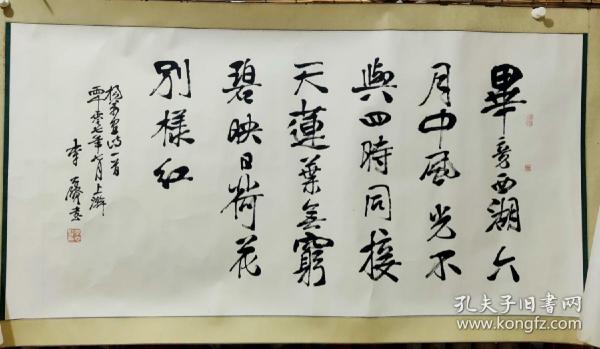 畢竟西湖六
月中風光不
與四時同接
天蓮葉無窮
碧映日荷花
別樣紅
楊萬里詩一首
零七年八月上澣
李
孔夫子旧书网
www.kongfz.com